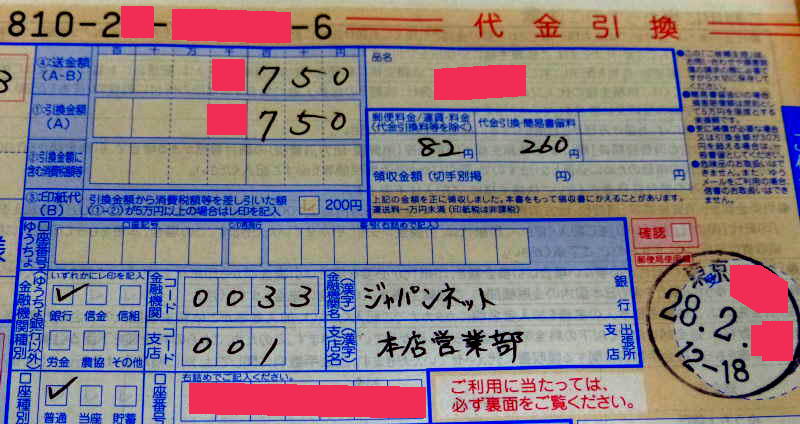 810-2
-6
代金引換
④:送金額
(A-B)
百 十 万 千 百 十 円
750
①:引換金額
(A)
750
②:引換金額に
含む消費税額等
③:印紙代
(B)
引換金額から消費税額等を差し引いた額
(①-②)が5万円以上の場合はレ印を記入
200円
品名
郵便料金/運賃・料金
(代金引換料等を除く)
代金引換・簡易書留料
82円
260円
領収金額 (切手別掲 円) 円
上記の金額を正に領収しました。本書をもって領収書にかえることがあります。
運送料一万円未満(印紙税は非課税)
ゆうちょ
口座番号
口座記号
番号(右詰めで記入)
確認
郵便局使用欄
金融機関種別
(ゆうちょ銀行以外)
いずれかにレ印を記入
✓
銀行 信金 信組
労金 農協 その他
金融機関
コード
0033
金融機関名
(漢字)
ジャパンネット
銀行
支店
コード
001
支店名
(漢字)
本店営業部
出張所
支店
口座種別
✓
普通 当座 貯蓄
口座番号
右詰めでご記入ください。
ご利用に当たっては、
必ず裏面をご覧ください。
東京
28.2.
12-18